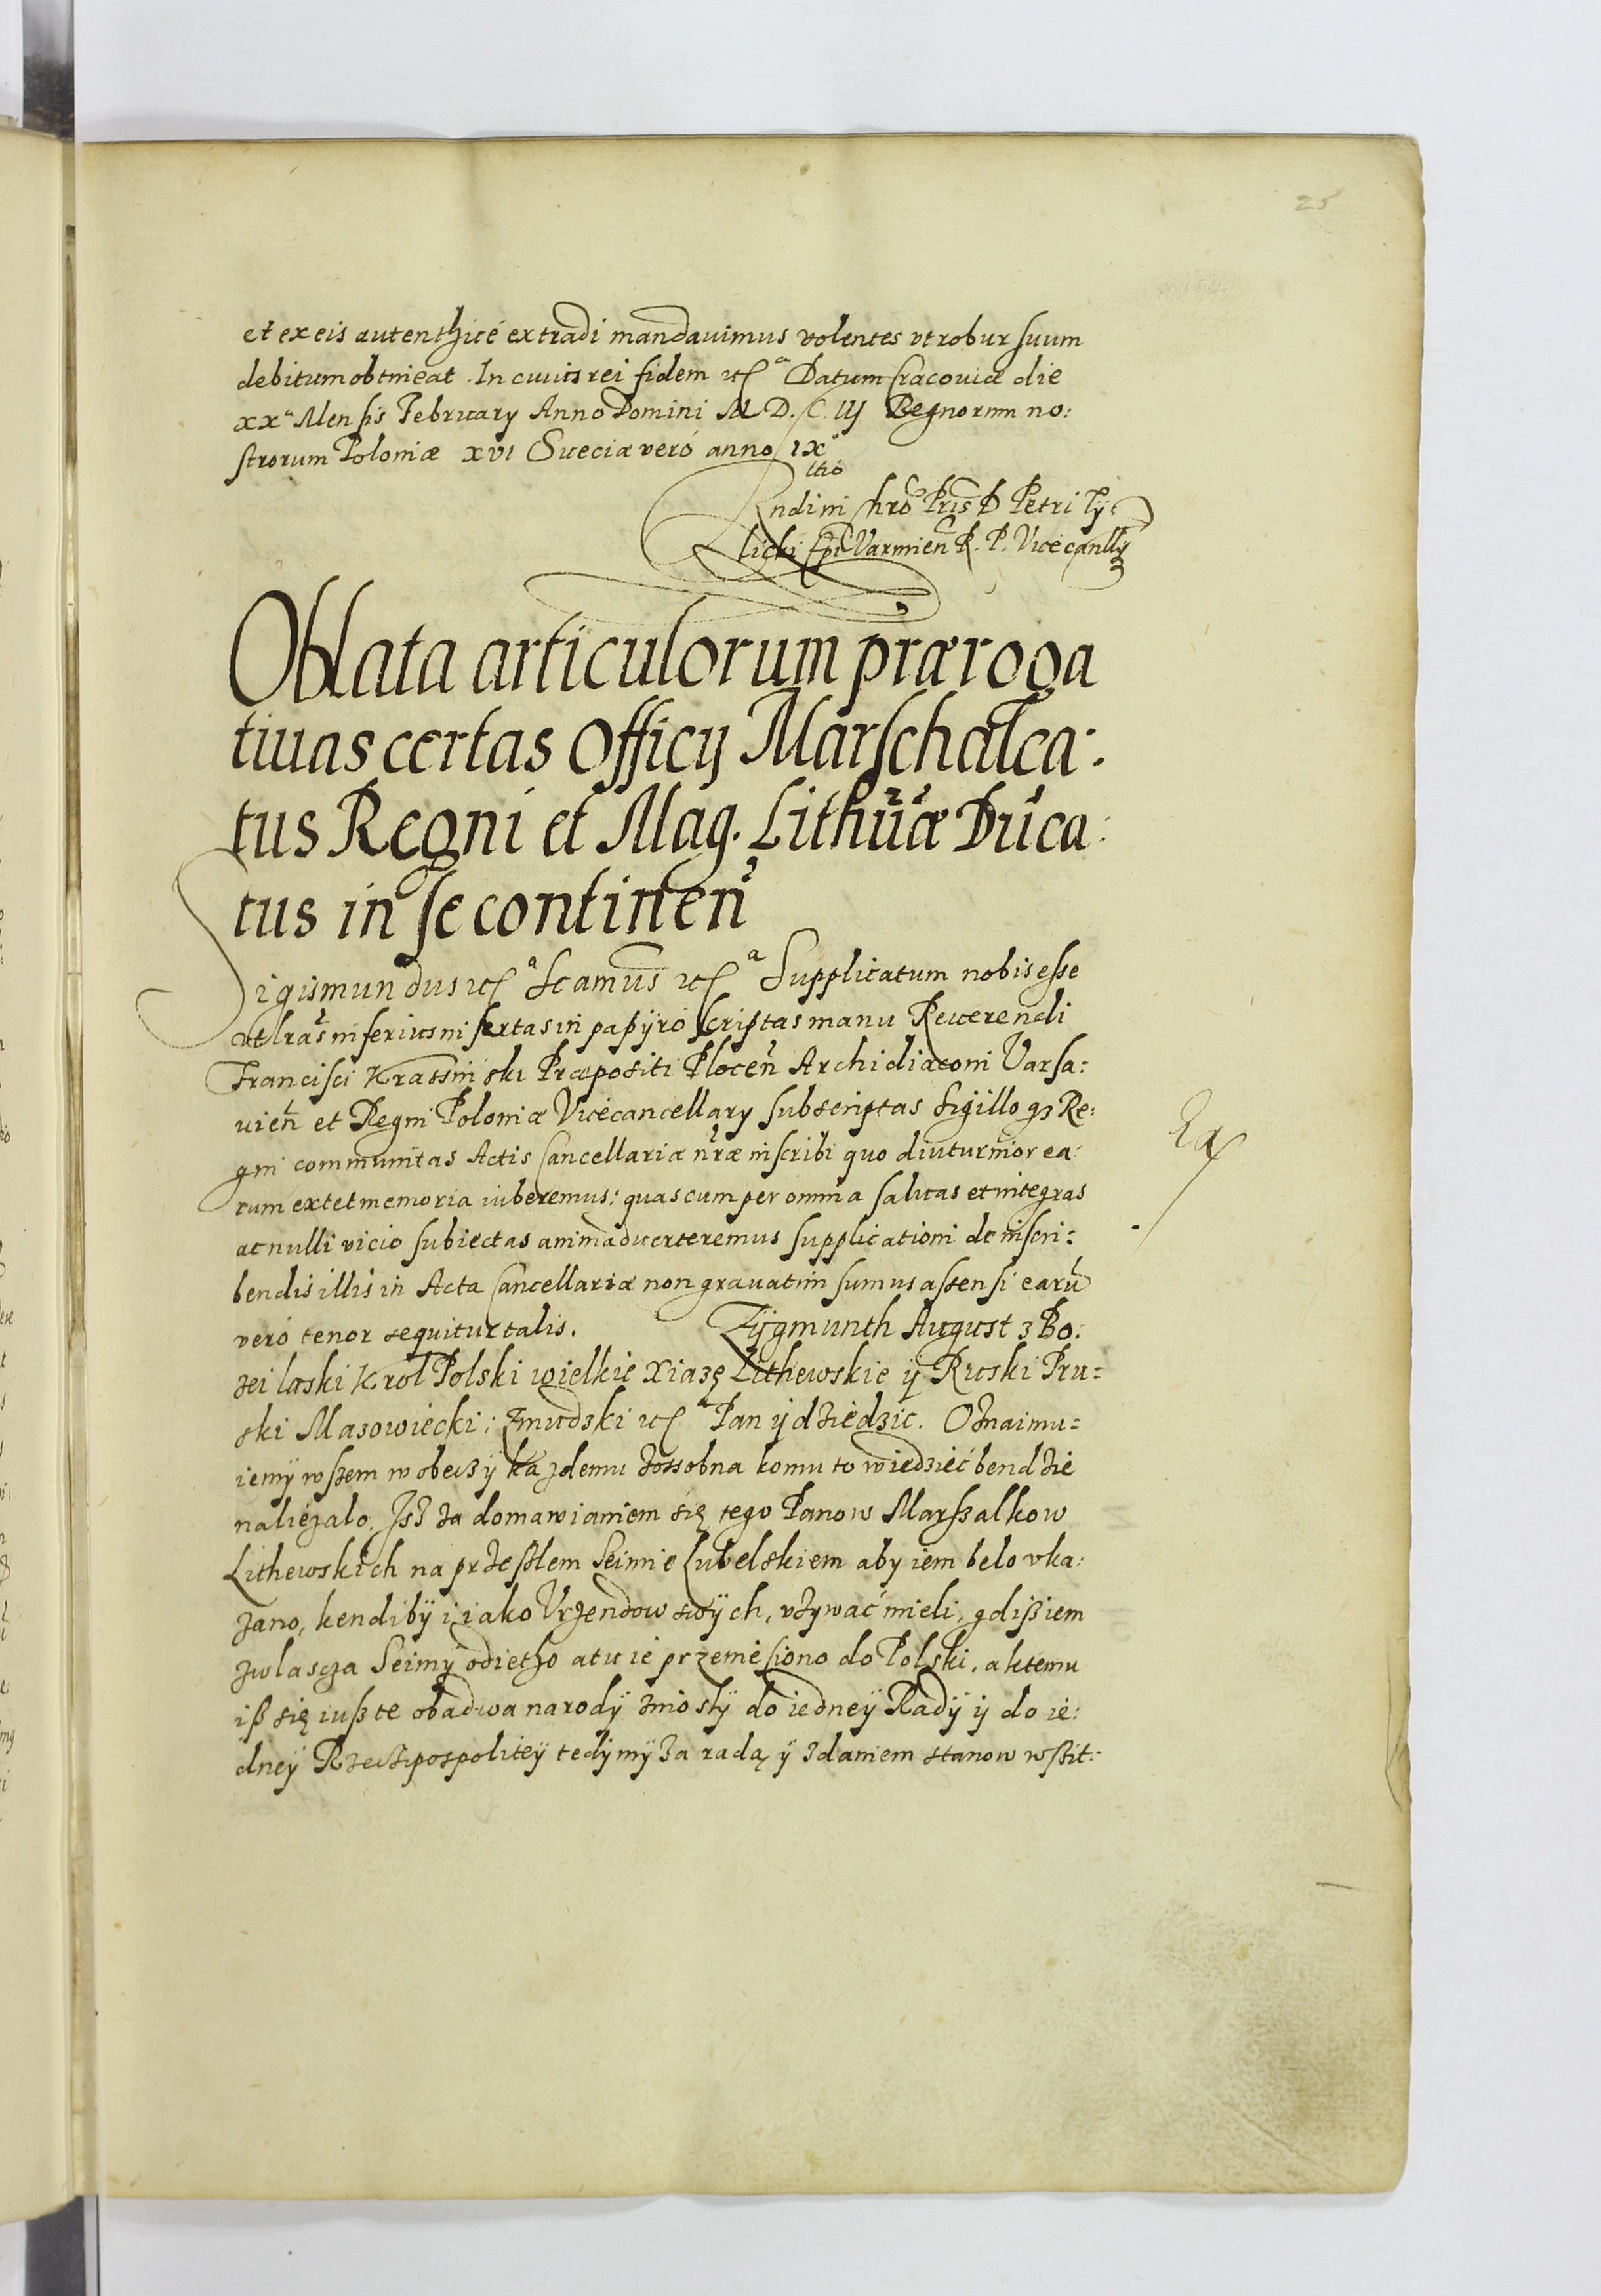 25
et ex eis autenthicé extradi mandauimus volentes vt robur suum
debitum obtineat. In cuius rei fidem etc.ª Datum Cracouiæ die
xxª Mensis February Anno Domini M D. C. IIIJ Regnorum no:
strorum Poloniæ xvi Sueciæ veró anno IXº
Rndi in Chrõ Pris D Petri Ty:
licki Epi Varmien R. P. Vicecanlly
Oblata articulorum præroga
tiuas certas Officij Marschalca:
tus Regni et Mag. Lithuæ Duca:
tus in se continen
Sigismundus etc.ª Scamus etc.ª Supplicatum nobis esse
vt lras inferius insertas in papÿro scriptas manu Reuerendi
Francisci Krassinski Præpositi Plocen Archidiaconi Varsa:
uien et Regni Poloniæ Vicecancellary subscriptas sigillo q3 Re:
gni communitas Actis Cancellariæ nræ inscribi quo diuturnior ea:
rum extet memoria iuberemus: quas cum per omnia saluas et integras
ac nulli vicio subiectas animaduerteremus supplicationi de inscri:
bendis illis in Acta Cancellariæ non grauatim sumus assensi earũ
veró tenor sequitur talis. Zÿgmunth August z Bo:
zei laski Krol Polski wielkie Xiazę Lithewskie ÿ Ruski Pru:
ski Mazowiecki: Zmudzki etc.ª Pan ÿ dziedzic. Oznaimu:
iemÿ wszem wobecz ÿ kazdemu zossobna komu to wiedzieć bendzie
naliezalo. Isz za domawianiem się tego Panow Marszalkow
Lithewskich na przeszlem Seimie Lubelskiem aby iem belo vka:
zano, kendibÿ i iako Vrzendow swÿch, vzywać mieli, gdiß iem
zwlascza Seimÿ odietho a tu ie przeniesiono do Polski, a ktemu
iß się iuß te obadwa narodÿ zniosłÿ do iedneÿ Radÿ ÿ do ie:
dneÿ Rzeczipospoliteÿ tedÿ mÿ za radą ÿ zdaniem stanow wszit: